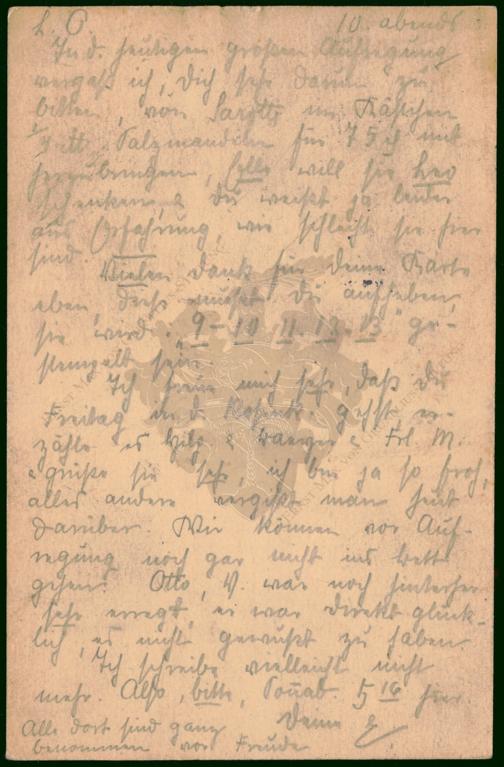 L. O 10. abends
In d. heutigen großen Aufregung
vergaß ich, Dich sehr darum zu
bitten, von Sarotti im Kästchen
Salzmandeln für 75 ₰ mit
herzubringen, will sie Leo
schenken, & Du weißt ja leider
aus Erfahrung, wie schlecht sie hier
sind. Vielen Dank für Deine Karte
eben, diese mußt Du aufheben,
sie wird „9-10. 11. 12. 13" ge-
stempelt sein.
Ich freue mich sehr, daß Du
Freitag in d. gehst er-
zähle es & & Frl. M.
& grüße sie sehr, ich bin ja so froh,
alles andere vergißt man heut
darüber. Wir können vor Auf-
regung noch gar nicht ins Bett
gehen. Otto, V. war noch hinterher
sehr erregt, er war direkt glück-
lich, es nicht gewußt zu haben.
Ich schreibe vielleicht nicht
mehr. Also, bitte, Sonnab. 5 16 hier.
Deine E.
Alle dort sind ganz
benommen vor Freude